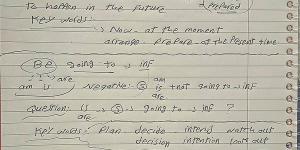 To happen in the future
prepared
Key words:
Now - at the moment
arrange - prepare - at the present time
Be going to → inf
am is are
Negative: Ⓢ am is are + not going to → inf
Question: is → Ⓢ → going to → inf ?
Key words: Plan decide intend watch out
decision intention look out